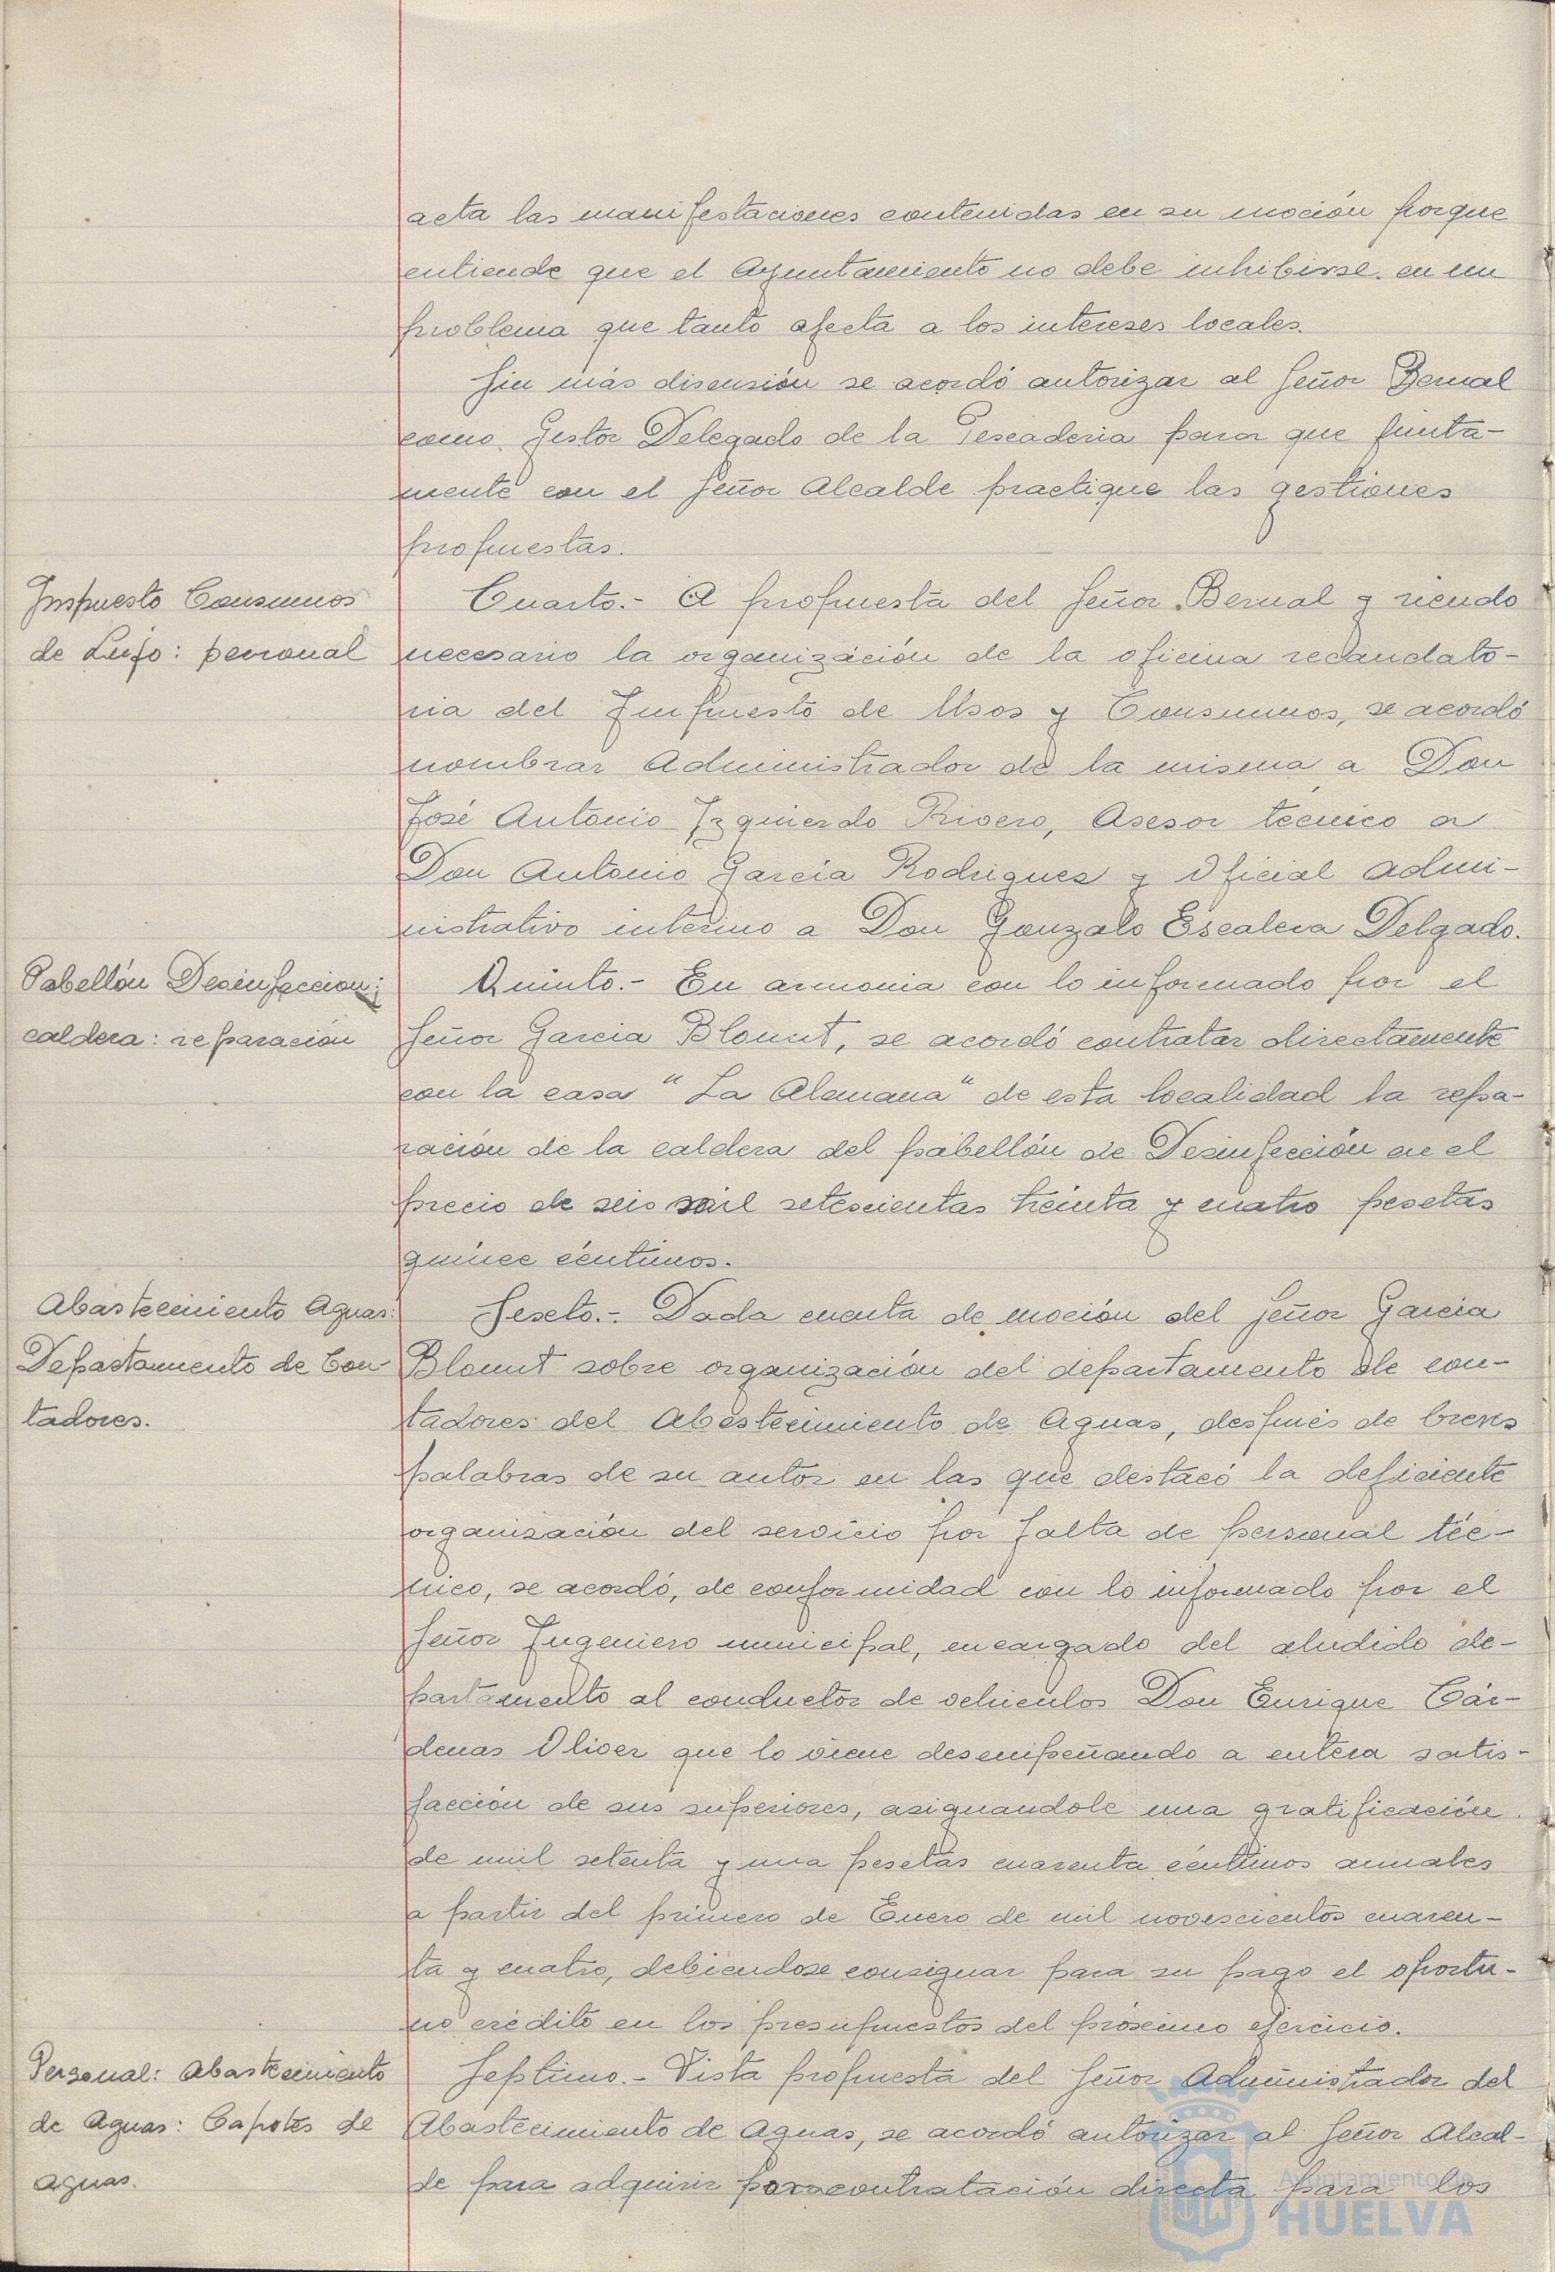 acta las manifestaciones contenidas en su moción porque
entiende que el Ayuntamiento no debe inhibirse en un
problema que tanto afecta a los intereses locales.
Sin más discusión se acordó autorizar al Señor Bernal
como Gestor Delegado de la Pescaderia para que junta-
mente con el Señor Alcalde practique las gestiones
propuestas.
Impuesto Consumos
de Lujo: personal
Cuarto.- A propuesta del Señor Bernal y siendo
necesario la organización de la oficina recaudato-
ria del Impuesto de Usos y Consumos, se acordó
nombrar Administrador de la misma a Don
José Antonio Izquierdo Rivero, Asesor técnico a
Don Antonio Garcia Rodriguez y Oficial admi-
nistrativo interino a Don Gonzalo Escalera Delgado.
Pabellón Desinfeccion;
caldera: reparación
Quinto.- En armonia con lo informado por el
Señor Garcia Blount, se acordó contratar directamente
con la casa "La Alemana" de esta localidad la repa-
ración de la caldera del pabellón de Desinfección en el
precio de seis mil setescientas treinta y cuatro pesetas
quince céntimos.
Abastecimiento Aguas:
Departamento de Con-
tadores.
Sexto.- Dada cuenta de moción del Señor Garcia
Blount sobre organización del departamento de con-
tadores del Abestecimiento de Aguas, después de breves
palabras de su autor en las que destacó la deficiente
organización del servicio por falta de personal téc-
nico, se acordó, de conformidad con lo informado por el
Señor Ingeniero municipal, encargado del aludido de-
partamento al conductor de vehiculos Don Enrique Cár-
denas Oliver que lo viene desempeñando a entera satis-
facción de sus superiores, asignandole una gratificación
de mil setenta y una pesetas cuarenta céntimos anuales
a partir del primero de Enero de mil novescientos cuaren-
ta y cuatro, debiendose consignar para su pago el oportu-
no crédito en los presupuestos del próximo ejercicio.
Personal: Abastecimiento
de Aguas: Capotes de
aguas.
Septimo.- Vista propuesta del Señor Administrador del
Abastecimiento de Aguas, se acordó autorizar al Señor Alcal-
de para adquirir por contratación directa para los
Ayuntamiento de
HUELVA